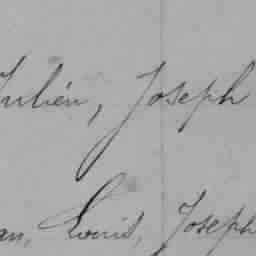 Julien, Joseph
an, Louis, Joseph